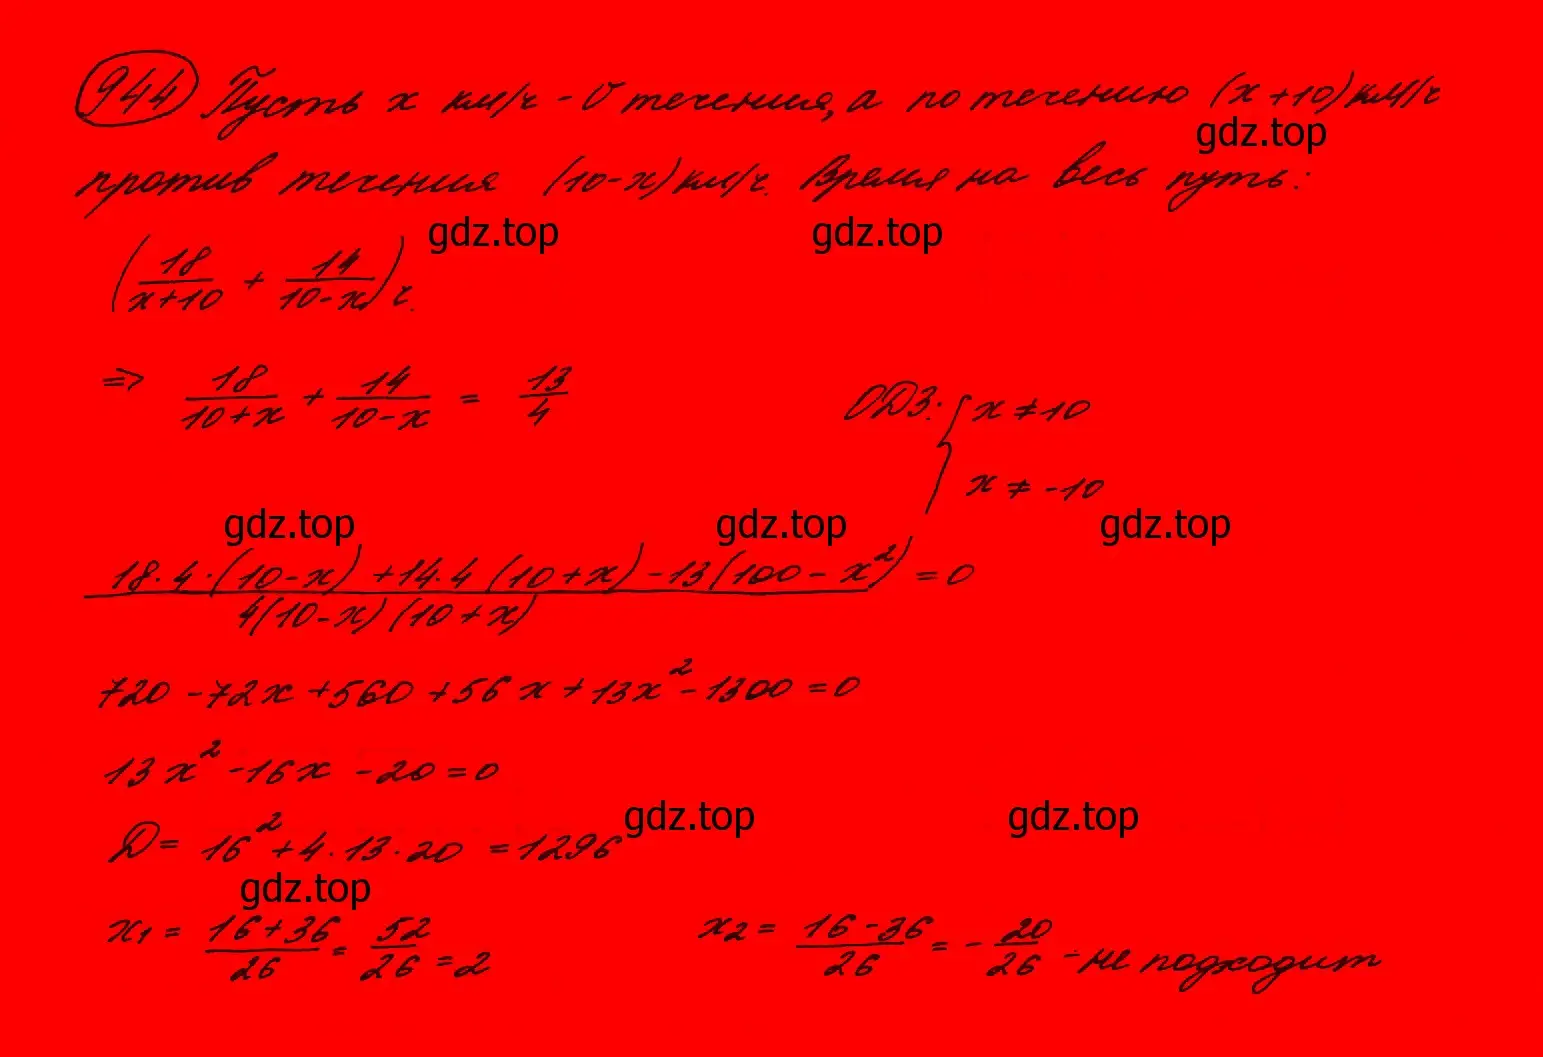 944 Пусть x км/ч - v течения, а по течению (x+10) км/ч
gdz.top
против течения (10-x) км/ч. Время на весь путь:
gdz.top gdz.top
(18/(x+10) + 14/(10-x)) ч.
=> 18/(10+x) + 14/(10-x) = 13/4 ОДЗ: { x ≠ 10
x ≠ -10
gdz.top gdz.top gdz.top
(18·4·(10-x) + 14·4(10+x) - 13(100-x²))/(4(10-x)(10+x)) = 0
720 - 72x + 560 + 56x + 13x² - 1300 = 0
13x² - 16x - 20 = 0
gdz.top gdz.top
D = 16² + 4·13·20 = 1296
gdz.top
x₁ = (16+36)/26 = 52/26 = 2 x₂ = (16-36)/26 = -20/26 - не подходит